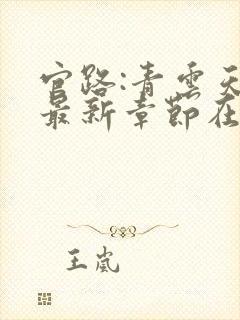 官路:青云天
最新章节在
王岚